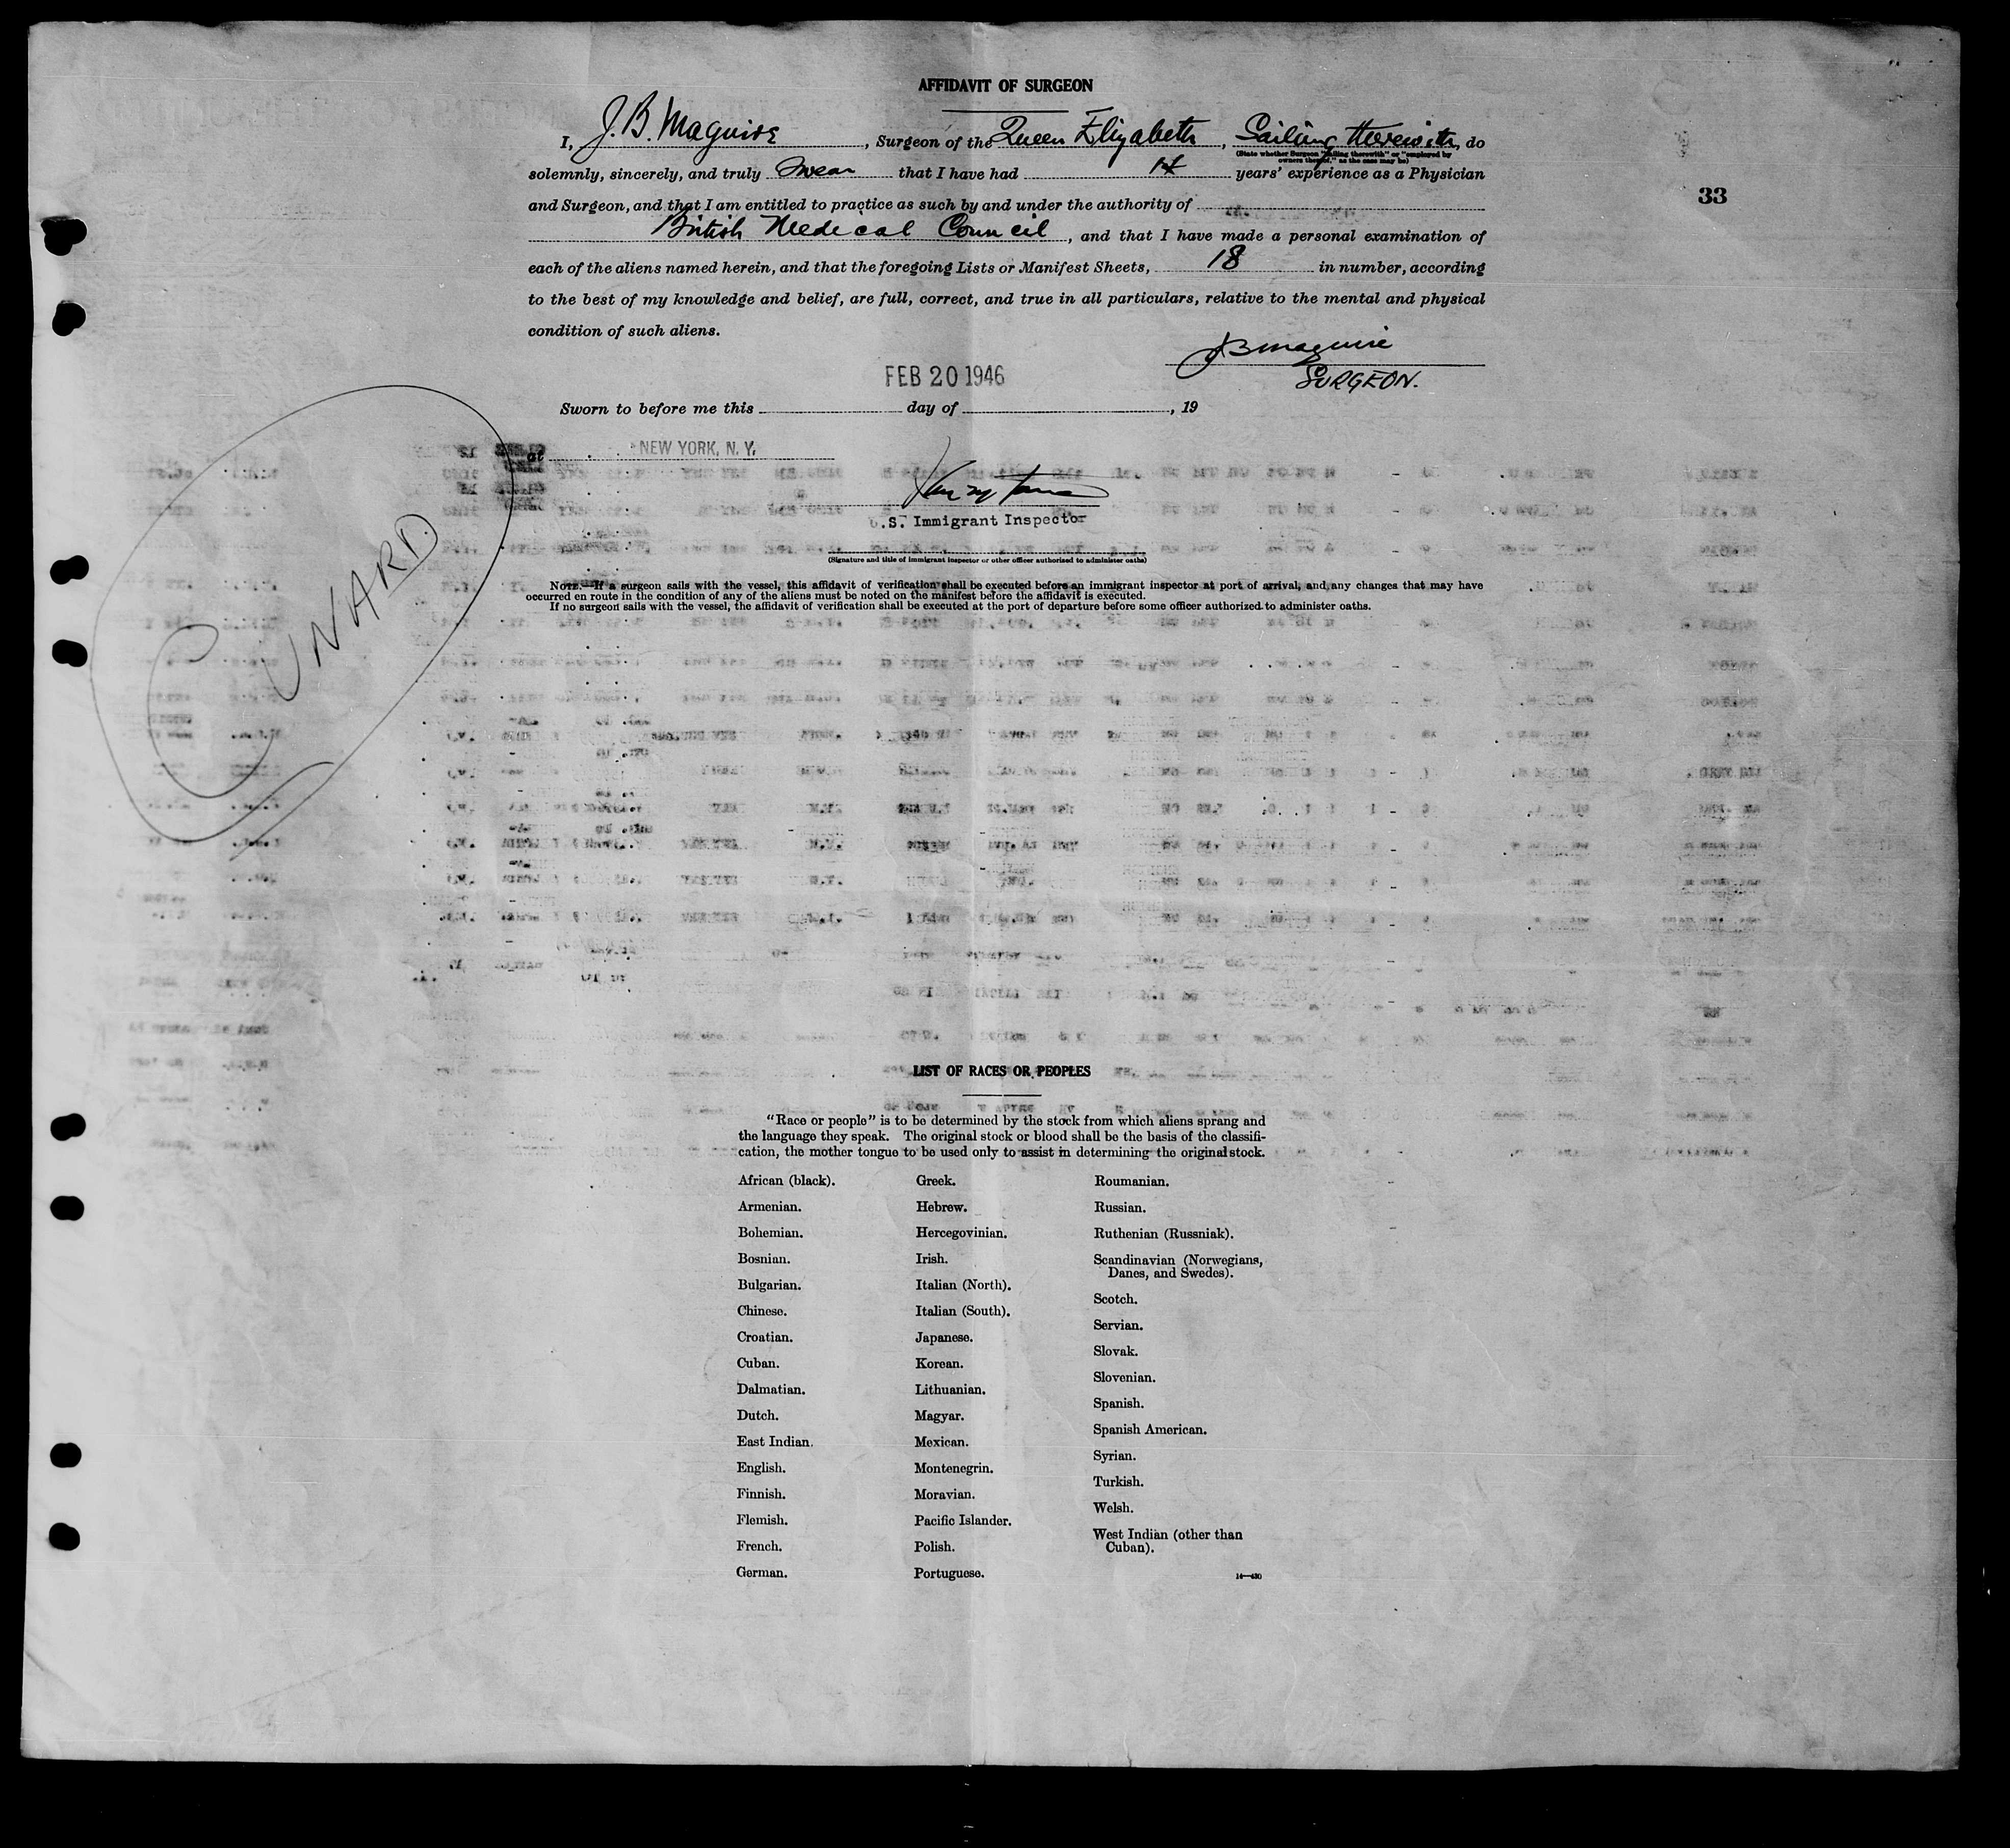 AFFIDAVIT OF SURGEON
I, J. B. Maguire, Surgeon of the Queen Elizabeth, Sailing therewith, do
(State whether Surgeon "sailing therewith" or "employed by
owners thereof," as the case may be)
solemnly, sincerely, and truly swear that I have had 14 years' experience as a Physician
33
and Surgeon, and that I am entitled to practice as such by and under the authority of
British Medical Council, and that I have made a personal examination of
each of the aliens named herein, and that the foregoing Lists or Manifest Sheets, 18 in number, according
to the best of my knowledge and belief, are full, correct, and true in all particulars, relative to the mental and physical
condition of such aliens.
JB Maguire
SURGEON.
FEB 20 1946
Sworn to before me this day of , 19
at NEW YORK, N. Y.
U.S. Immigrant Inspector
(Signature and title of immigrant inspector or other officer authorized to administer oaths)
CUNARD.
NOTE.—If a surgeon sails with the vessel, this affidavit of verification shall be executed before an immigrant inspector at port of arrival, and any changes that may have
occurred en route in the condition of any of the aliens must be noted on the manifest before the affidavit is executed.
If no surgeon sails with the vessel, the affidavit of verification shall be executed at the port of departure before some officer authorized to administer oaths.
LIST OF RACES OR PEOPLES
"Race or people" is to be determined by the stock from which aliens sprang and
the language they speak. The original stock or blood shall be the basis of the classifi-
cation, the mother tongue to be used only to assist in determining the original stock.
African (black).
Armenian.
Bohemian.
Bosnian.
Bulgarian.
Chinese.
Croatian.
Cuban.
Dalmatian.
Dutch.
East Indian.
English.
Finnish.
Flemish.
French.
German.
Greek.
Hebrew.
Hercegovinian.
Irish.
Italian (North).
Italian (South).
Japanese.
Korean.
Lithuanian.
Magyar.
Mexican.
Montenegrin.
Moravian.
Pacific Islander.
Polish.
Portuguese.
Roumanian.
Russian.
Ruthenian (Russniak).
Scandinavian (Norwegians,
Danes, and Swedes).
Scotch.
Servian.
Slovak.
Slovenian.
Spanish.
Spanish American.
Syrian.
Turkish.
Welsh.
West Indian (other than
Cuban).